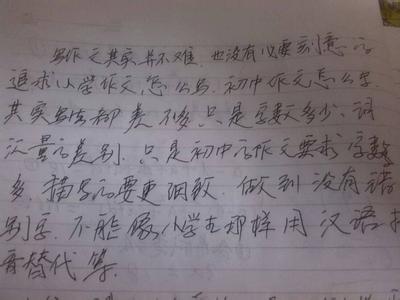 写作文其实并不难，也没有必要刻意的
追求小学作文，怎么写，初中作文怎么写
其实写法都差不多，只是字数多少、词
汇量的差别，只是初中的作文要求字数
多，描写的要更细致，做到没有错
别字，不能像小学生那样用汉语拼
音替代等。